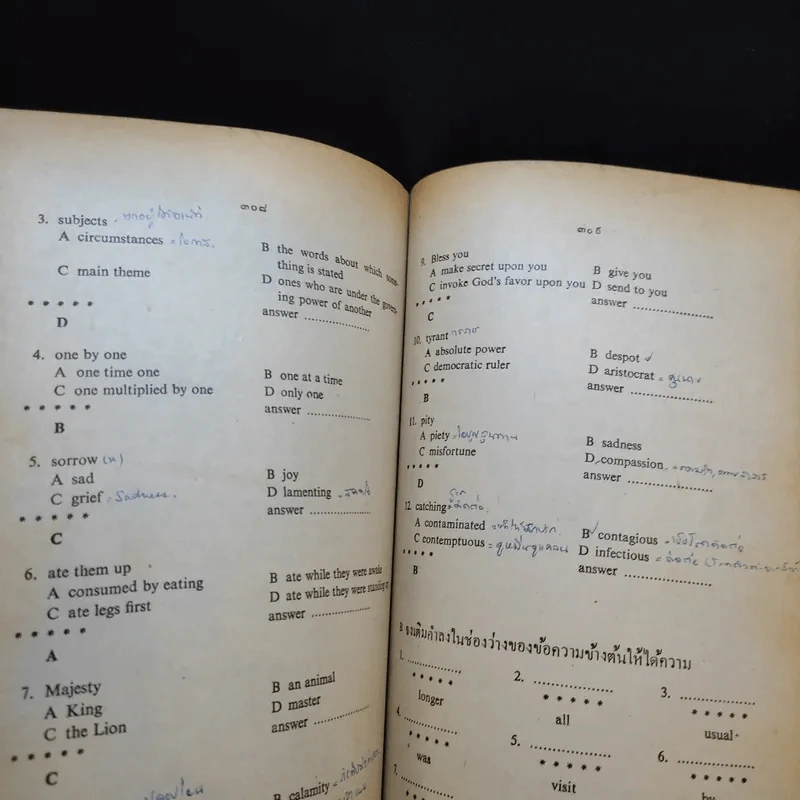 ๓๐๘
3. subjects
A circumstances
B the words about which some-
thing is stated
C main theme
D ones who are under the govern-
ing power of another
answer ..................
* * * * *
D
4. one by one
A one time one
B one at a time
C one multiplied by one
D only one
answer ..................
* * * * *
B
5. sorrow (n)
A sad
B joy
C grief = Sadness.
D lamenting
answer ..................
* * * * *
C
6. ate them up
A consumed by eating
B ate while they were awake
C ate legs first
D ate while they were standing
answer ..................
* * * * *
A
7. Majesty
A King
B an animal
C the Lion
D master
answer ..................
* * * * *
C
B calamity
๓๐๙
9. Bless you
A make secret upon you
B give you
C invoke God's favor upon you
D send to you
answer ..................
* * * * *
C
10. tyrant ทรราช
A absolute power
B despot ✓
C democratic ruler
D aristocrat
answer ..................
* * * * *
B
11. pity
A piety
B sadness
C misfortune
D compassion
answer ..................
* * * * *
D
12. catching
A contaminated
B contagious
C contemptuous
D infectious
answer ..................
* * * * *
B
B จงเติมคำลงในช่องว่างของข้อความข้างต้นให้ได้ความ
1. ..................
2. ..................
3. ..................
* * * * *
* * * * *
* * * * *
longer
all
usual
4. ..................
5. ..................
6. ..................
* * * * *
* * * * *
* * * * *
was
visit
by
7. ..................